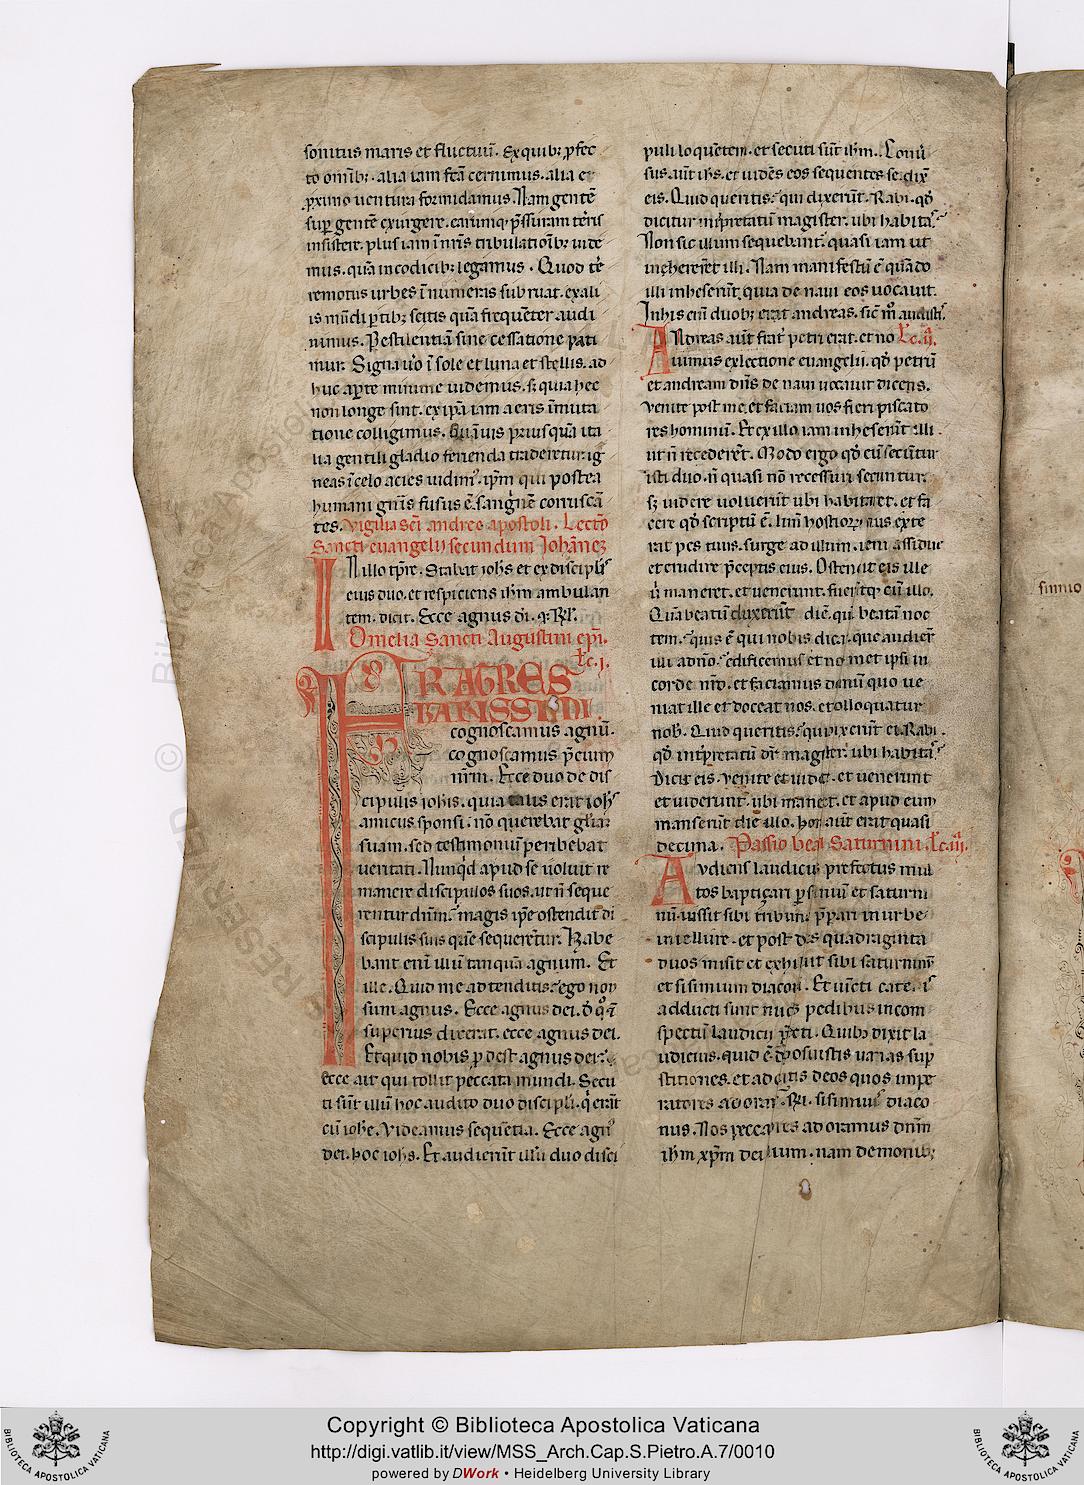 sonitus maris et fluctuũ. Ex quib; ꝑfec
to omĩb; alia iam fc̃a cernimus. alia e
ꝓximo uentura formidamus. Nam gentẽ
suꝑ gentẽ exurgere. earumq; p̃ssuram terris
insistere. plus iam ĩ nr̃is tribulatiõib; uide
mus. quã in codicib; legamus. Quod te
remotus urbes ĩnumeras subruat. ex ali
is mũdi ꝑtib; scitis quã frequẽter audi
uimus. Pestilentiã sine cessatione pati
mur. Signa u̾o ĩ sole et luna et stellis. ad
huc aꝑte minime uidemus. s; quia hec
non longe sint. ex ip̃a iam aeris ĩmuta
tione colligimus. Quãuis priusquã ita
lia gentili gladio ferienda traderetur. ig
neas ĩ celo acies uidim᷒. ip̃m qui postea
humani gñis fusus ẽ. sanguinẽ corruscã
tes. Vigilia sc̃i andree apostoli. Lectio
Sancti euangelij secundum Johãnez
IN illo tp̃re. Stabat iohs et ex discipłis
eius duo. et respiciens ih̃m ambulan
tem. dicit. Ecce agnus dĩ. ⁊ Rł.
Omelia Sancti Augustini ep̃i.
Łc. j.
FRATRES
KARISSIMI
cognoscamus agnũ.
cognoscamus p̃cium
nr̃m. Ecce duo de dis
cipulis iohis. quia talis erat ioħs
amicus sponsi. nõ querebat gł̃am
suam. sed testimoniũ peribebat
ueritati. Nunqd apud se uoluit re
manere discipulos suos. ut ñ seque
rentur dñm. magis ip̃e ostendit di
scipulis suis quẽ sequerẽtur. Habe
bant eni illũ tanquã agnum. Et
ille. Quid me adtenditis. ego non
sum agnus. Ecce agnus dei. d̾ q°
superius dixerat. ecce agnus dei.
Et quid nobis ꝓdest agnus dei.
ecce ait qui tollit peccata mundi. Secu
ti sũt illũ hoc audito duo discipłi. q̾ erãt
cũ iohe. Videamus sequẽtia. Ecce agn᷒
dei. hoc iohs. Et audierũt illũ duo disci
puli loquẽtem. et secuti sũt ih̃m. Conũ
sus aũt ih̃s. et uidẽs eos sequentes se. dix̃
eis. Quid queritis. qui dixerũt. Rabi. qd̾
dicitur int̾pretatũ magister. ubi habitas.
Non sic illum sequebant. quasi iam ut
inhererẽt illi. Nam manifestũ ẽ quãdo
illi inheserũt. quia de naui eos uocauit.
In his eni duob; erat andreas. sic m̊ audistis.
ANdreas aũt frat̾ petri erat. et no Łc. ij.
uimus ex lectione euangelij. qd̾ petrũ
et andream dñs de naui uocauit dicens.
Venite post me. et faciam uos fieri piscato
res hominũ. Et ex illo iam inheserũt illi
ut ñ recederẽt. Modo ergo qd̾ eũ secũtur
isti duo. ñ quasi nõ recessuri secuntur.
s; uidere uoluerũt ubi habitaret. et fa
cere qd̾ scriptũ ẽ. Limẽ hostiorũ eius exte
rat pes tuus. surge ad illum. ueni assidue
et erudire p̃ceptis eius. Ostendit eis ille
u̾ maneret. et uenerunt. fuerũtq; cũ illo.
Quã beatũ duxerũt diẽ. quã beatã noc
tem. quis ẽ qui nobis dicat. que audier̃t
illi a dño. edificemus et no met ipsi in
corde nr̃o. et faciamus domũ quo ue
niat ille et doceat nos. et colloquatur
nob̾. Quid queritis. qui dixerũt ei. Rabi.
qd̾ int̾pretatũ dr̃ magister. ubi habitas.
Dicit eis. Venite et uidete. et uenerunt
et uiderunt ubi maneret. et apud eum
manserũt die illo. hora aũt erat quasi
decima. Passio beati Saturnini. Łc. iij.
Audiens laudicius prefectus mul
tos baptiçari ꝑ sisiniũ et saturni
nũ. iussit sibi tribunal p̃parari in urbe
in tellure. et post dies quadraginta
duos misit et exhiberi sibi saturninũ
et sisinium diaconũ. Et uincti catenis
adducti sunt nudis pedibus in con
spectũ laudicij p̃fecti. Quib; dixit la
udicius. quid ẽ. deposuistis uarias suꝑ
stitiones. et ad oratis deos quos impe
ratores adorant. R̃. sisinnius diaco
nus. Nos peccatores adoramus dñm
ih̃m xp̃m dei filium. nam demonib;
sinnio
Copyright © Biblioteca Apostolica Vaticana
http://digi.vatlib.it/view/MSS_Arch.Cap.S.Pietro.A.7/0010
powered by DWork • Heidelberg University Library
BIBLIOTECA APOSTOLICA VATICANA
BIBLIOTECA APOSTOLICA VATICANA